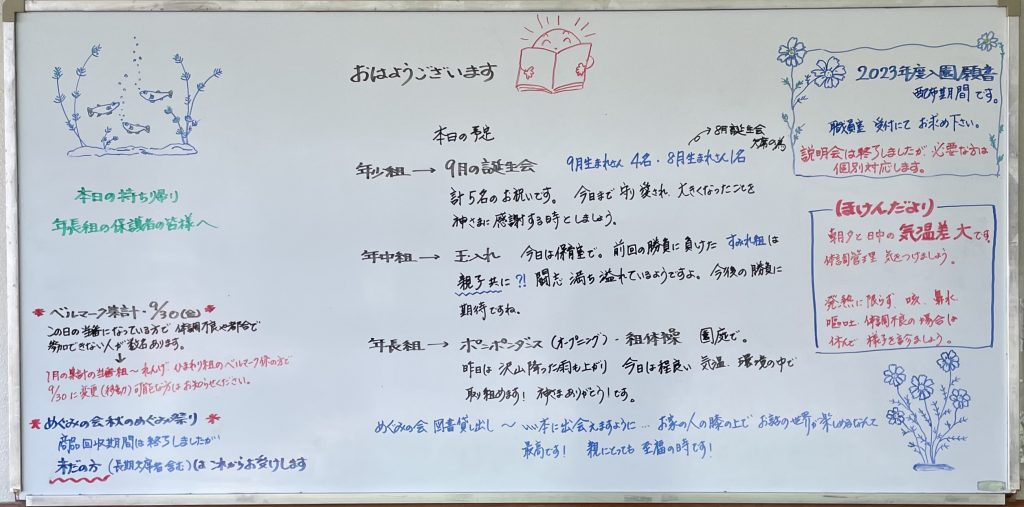 おはようございます
本日の予定
年少組 → 9月の誕生会 9月生まれさん 4名・8月生まれさん1名
8月誕生会
欠席の為
計5名のお祝いです。 今日まで 守り愛され、大きくなったことを
神さまに感謝する時としましょう。
年中組 → 玉入れ 今日は保育室で。前回の勝負に負けた すみれ組は
親子共に?! 闘志 満ち溢れているようですよ。今後の勝負に
期待ですね。
年長組 → ポンポンダンス (オープニング)・組体操 園庭で。
昨日は 沢山降った雨も上がり 今日は程良い 気温、環境の中で
取り組めます! 神さまありがとう!です。
めぐみの会 図書貸し出し 〜 ....本に出会えますように... お母さんの膝の上で お話の世界が楽しめるなんて
最高です! 親にとっても 至福の時です!
本日の持ち帰り
年長組の保護者の皆様へ
* ベルマーク集計・9/30(金) *
この日の当番になっている方で 体調不良や都合で
参加できない人が数名あります。
↓
1月の集計の当番組〜れんげ、ひまわり組のベルマーク係の方で
9/30に変更(移動)可能な方はお知らせください。
* めぐみの会 秋のめぐみ祭り *
商品回収期間は終了しましたが
未だの方 (長期欠席者含む) は これからもお受けします
2023年度入園願書
配布期間です。
職員室 受付にて お求め下さい。
説明会は終了しましたが 必要な方は
個別対応します。
ほけんだより
朝夕と日中の 気温差 大です。
体調管理 気をつけましょう。
発熱に限らず 咳、鼻水
嘔吐、体調不良の場合は
休んで 様子をみましょう。